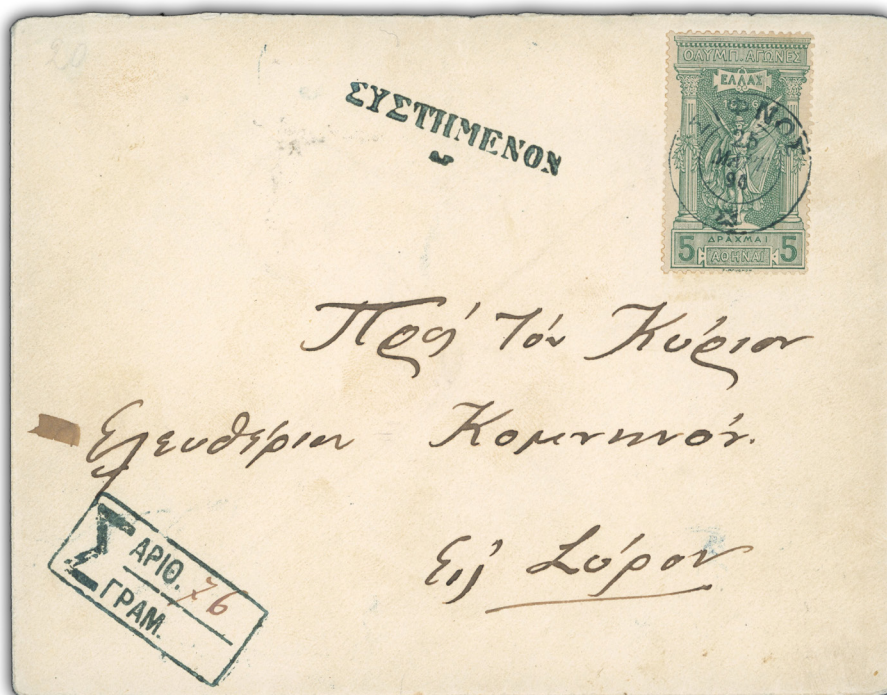 ΣΥΣΤΗΜΕΝΟΝ
ΟΛΥΜΠ. ΑΓΩΝΕΣ
ΕΛΛΑΣ
ΝΟΣ
25
5 ΔΡΑΧΜΑΙ 5
ΑΘΗΝΑΙ
Πρός Τόν Κύριον
Ελευθέριον Κομνηνόν.
Εις Σύρον
Σ ΑΡΙΘ. 76
ΓΡΑΜ.